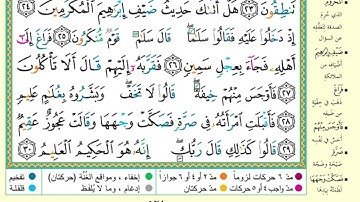 تَنطِقُونَ ﴿٢٣﴾ هَلْ أَتَىٰكَ حَدِيثُ ضَيْفِ إِبْرَٰهِيمَ ٱلْمُكْرَمِينَ ﴿٢٤﴾
إِذْ دَخَلُوا۟ عَلَيْهِ فَقَالُوا۟ سَلَٰمًا ۖ قَالَ سَلَٰمٌ قَوْمٌ مُّنكَرُونَ ﴿٢٥﴾ فَرَاغَ إِلَىٰٓ
أَهْلِهِۦ فَجَآءَ بِعِجْلٍ سَمِينٍ ﴿٢٦﴾ فَقَرَّبَهُۥٓ إِلَيْهِمْ قَالَ أَلَا تَأْكُلُونَ
﴿٢٧﴾ فَأَوْجَسَ مِنْهُمْ خِيفَةً ۖ قَالُوا۟ لَا تَخَفْ ۖ وَبَشَّرُوهُ بِغُلَٰمٍ عَلِيمٍ
﴿٢٨﴾ فَأَقْبَلَتِ ٱمْرَأَتُهُۥ فِى صَرَّةٍ فَصَكَّتْ وَجْهَهَا وَقَالَتْ عَجُوزٌ عَقِيمٌ
﴿٢٩﴾ قَالُوا۟ كَذَٰلِكِ قَالَ رَبُّكِ ۖ إِنَّهُۥ هُوَ ٱلْحَكِيمُ ٱلْعَلِيمُ ﴿٣٠﴾
مدّ ٦ حركات لزوماً مدّ ٢ أو ٤ أو ٦ جوازاً إخفاء، ومواقع الغُنَّة (حركتان) تفخيم
مدّ واجب ٤ أو ٥ حركات مدّ حركتان إدغام، وما لا يُلفَظ قلقلة